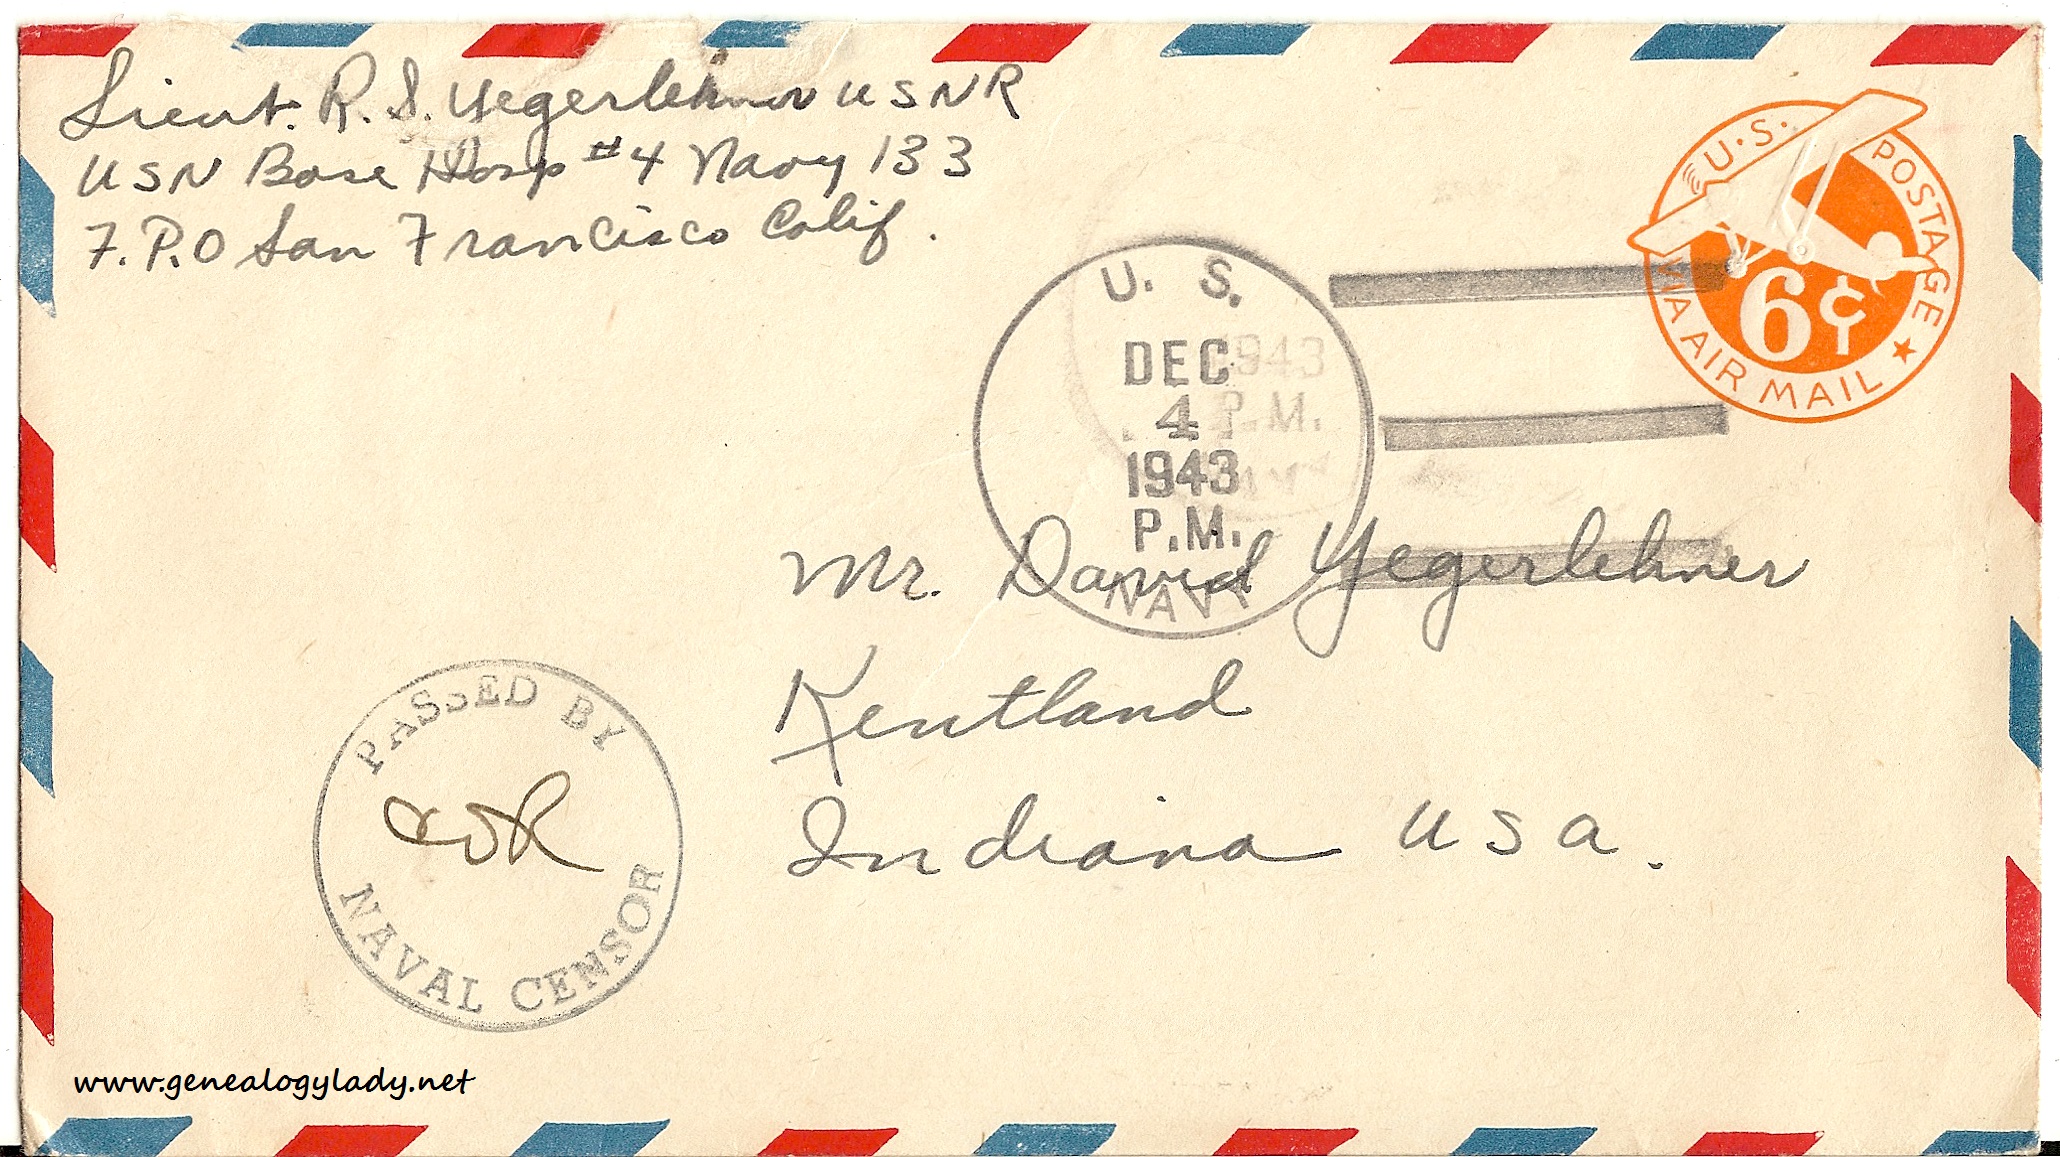 Lieut. R. S. Yegerlehner USNR
USN Base Hosp #4 Navy 133
F.P.O San Francisco Calif.
U.S. POSTAGE
6¢
VIA AIR MAIL
U. S.
DEC
4
1943
P.M.
NAVY
1943
P.M.
Mr. David Yegerlehner
Kentland
Indiana USA.
PASSED BY
NAVAL CENSOR
www.genealogylady.net